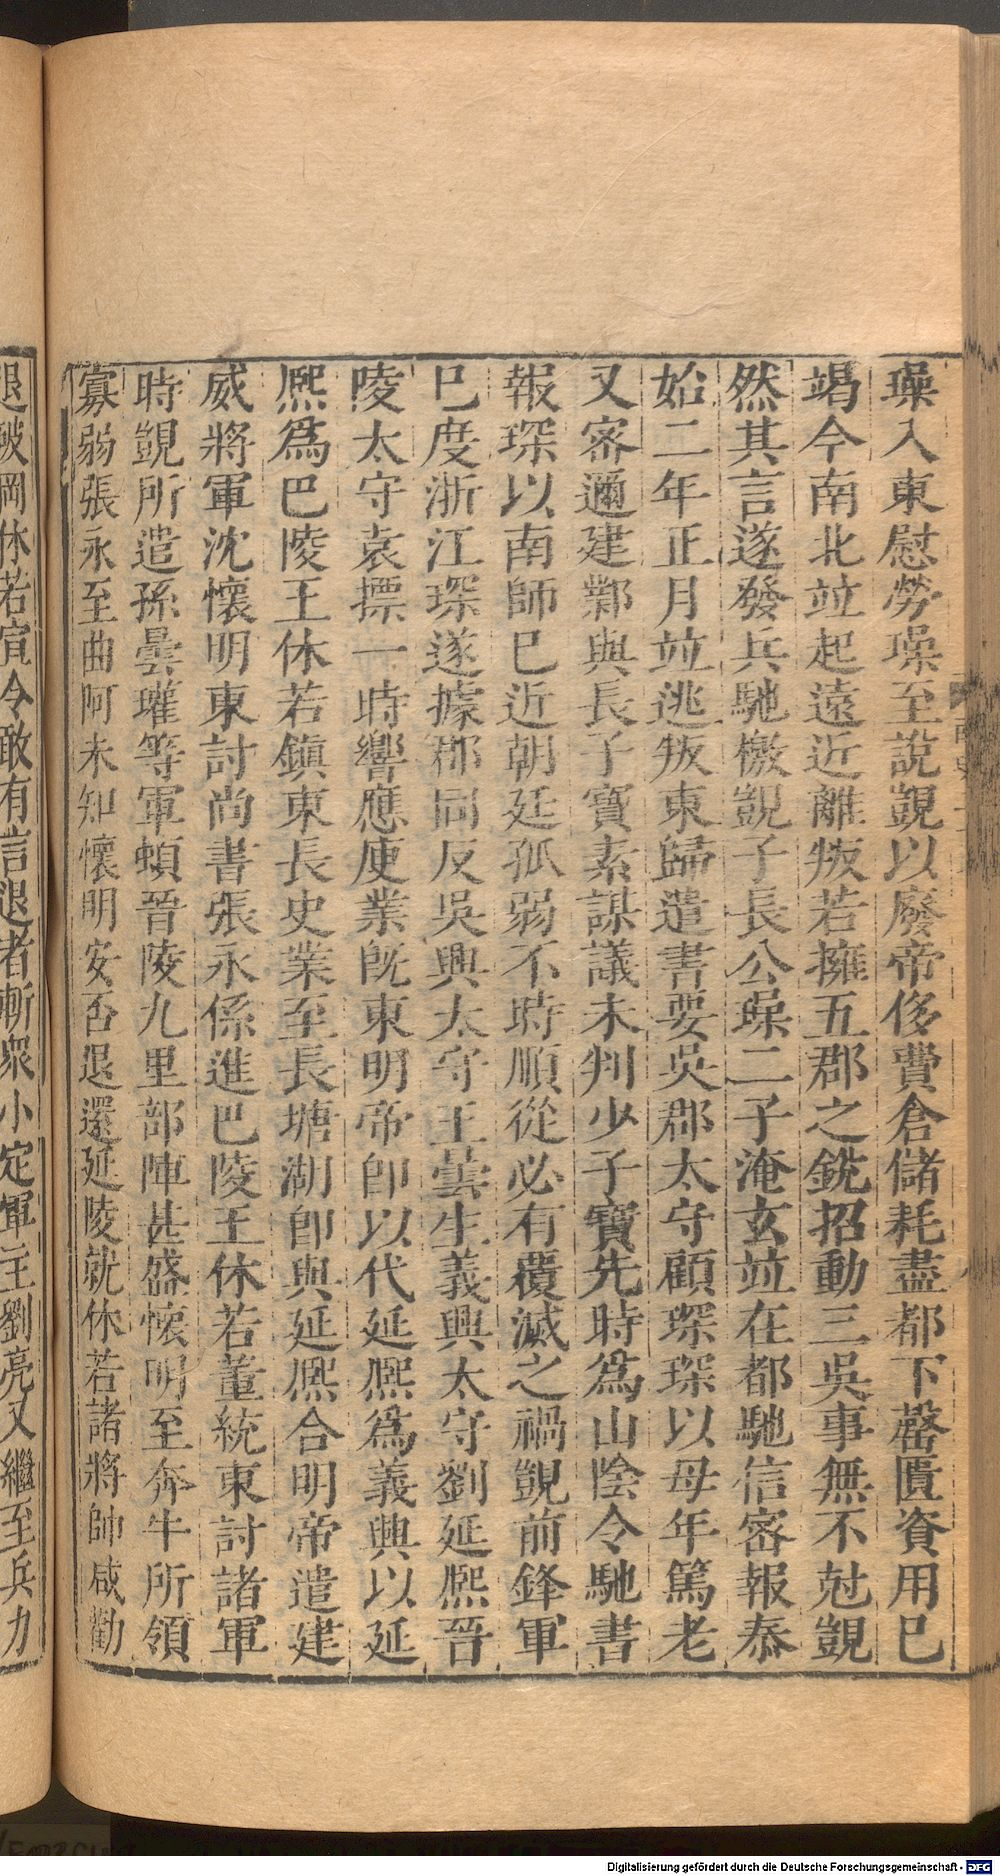 璪入東慰勞璪至說覬以廢帝侈費倉儲耗盡都下罄匱資用已
竭今南北竝起遠近離叛若擁五郡之銳招動三吳事無不尅覬
然其言遂發兵馳檄覬子長公璪二子淹玄竝在都馳信密報泰
始二年正月竝逃叛東歸遣書要吳郡太守顧琛琛以母年篤老
又密邇建鄴與長子寶素謀議未判少子寶先時爲山陰令馳書
報琛以南師已近朝廷孤弱不時順從必有覆滅之禍覬前鋒軍
已度浙江琛遂據郡同反吳興太守王曇生義興太守劉延熙晉
陵太守袁摽一時響應庾業旣東明帝卽以代延熙爲義興以延
熙爲巴陵王休若鎭東長史業至長塘湖卽與延熙合明帝遣建
威將軍沈懷明東討尚書張永係進巴陵王休若董統東討諸軍
時覬所遣孫曇瓘等軍頓晉陵九里部陣甚盛懷明至奔牛所領
寡弱張永至曲阿未知懷明安否退還延陵就休若諸將帥咸勸
退破岡休若宣令敢有言退者斬衆小定軍主劉亮又繼至兵力
Digitalisierung gefördert durch die Deutsche Forschungsgemeinschaft - DFG